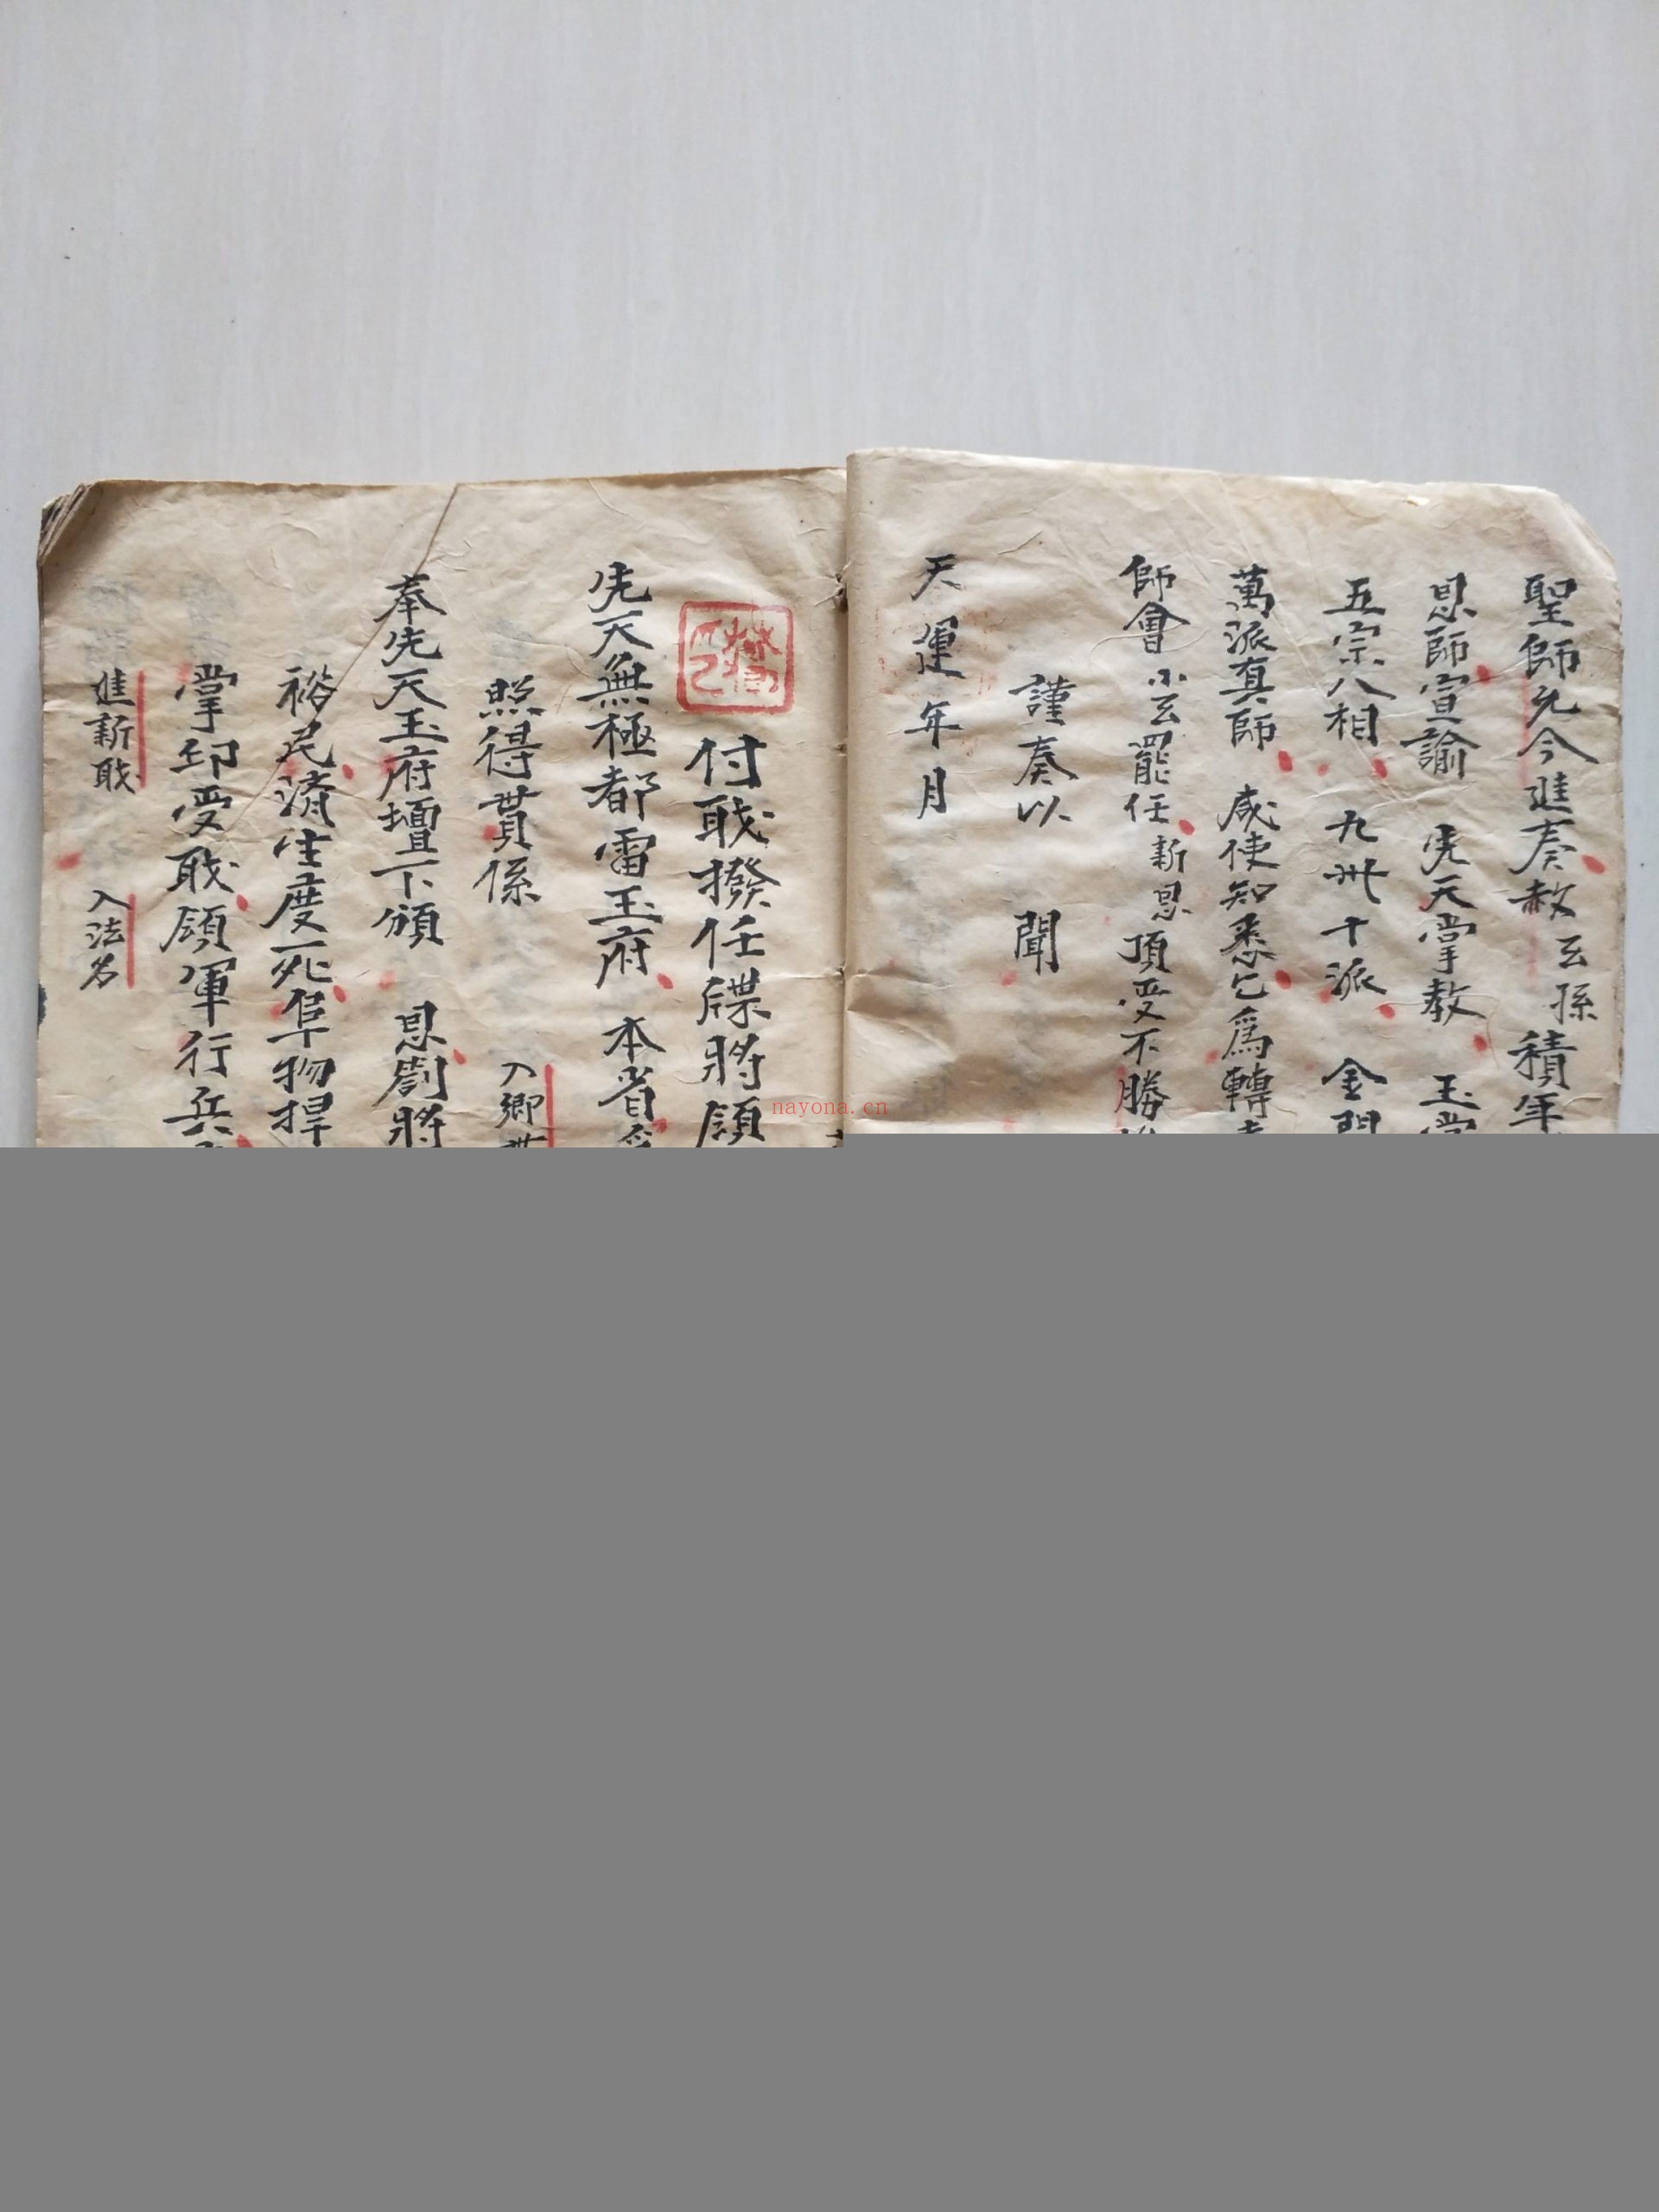 聖師允今進奏赦玄孫積年
恩師宣諭 虎天掌教 玉堂
五宗八相 九州十派 金門
萬派真師 咸使知悉乞為轉
師會小玄罷任新恩頂受不勝
謹奏以 聞
天運年月
付職撥任牒將領
先天無極都雷玉府 本省
照得貫係 入鄉
奉先天玉府壇下頒 恩劄將
裕民濟生度死阜物捍
掌印受職領軍行兵
進新職 入法名
nayona.cn